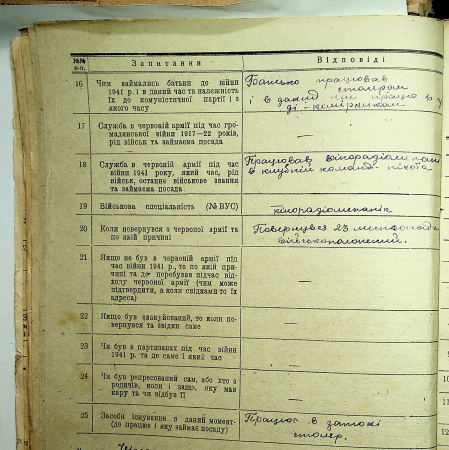 №№ п-п. Запитання Відповіді
16 Чим займались батьки до війни
1941 р. і в даний час та належність
їх до комуністичної партії і з
якого часу
Батько працював
столяром
і в даний час працює в
комірником
17 Служба в червоній армії під час гро-
мадянської війни 1917—22 років,
рід військ та займаєма посада
—
18 Служба в червоній армії під час
війни 1941 року, який час, рід
військ, останнє військове звання
та займаєма посада
Працював кінорадіомеханік
в клубній команді піхота
19 Військова спеціальність (№ ВУС)
кінорадіомеханік
20 Коли повернувся з червоної армії та
по якій причині
Повернувся 23 листопада
військополонений.
21 Якщо не був в червоній армії під
час війни 1941 р., то по якій при-
чині та де перебував підчас від-
ходу червоної армії (чим може
підтвердити, а коли свідками то їх
адреса)
—
22 Якщо був евакуйований, то коли по-
вернувся та звідки саме
—
23 Чи був в партизанах під час війни
1941 р. та де саме і який час
—
24 Чи був репресований сам, або хто з
родичів, коли і защо, яку мав
кару та чи відбув її
—
25 Засоби існування в даний момент-
(де працює і яку займає посаду)
Працює в
столяр.